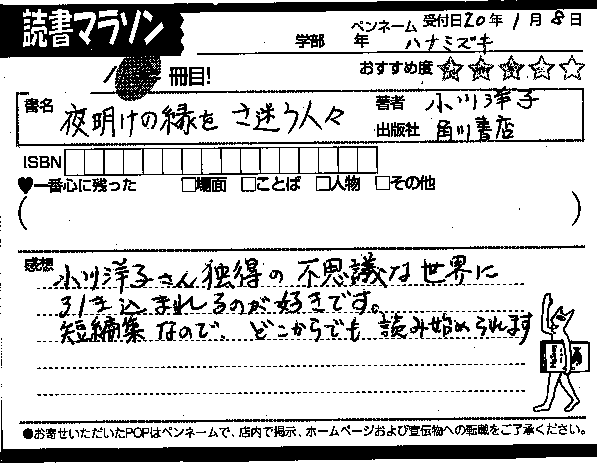 読書マラソン
ペンネーム 受付日20年1月8日
学部 年 ハナミズキ
冊目!
おすすめ度 ★★★☆☆
書名 夜明けの縁をさ迷う人々
著者 小川洋子
出版社 角川書店
ISBN
♥一番心に残った □場面 □ことば □人物 □その他
( )
感想
小川洋子さん独得の不思議な世界に
引き込まれるのが好きです。
短編集なので、どこからでも読み始められます
●お寄せいただいたPOPはペンネームで、店内で掲示、ホームページおよび宣伝物への転載をご了承ください。